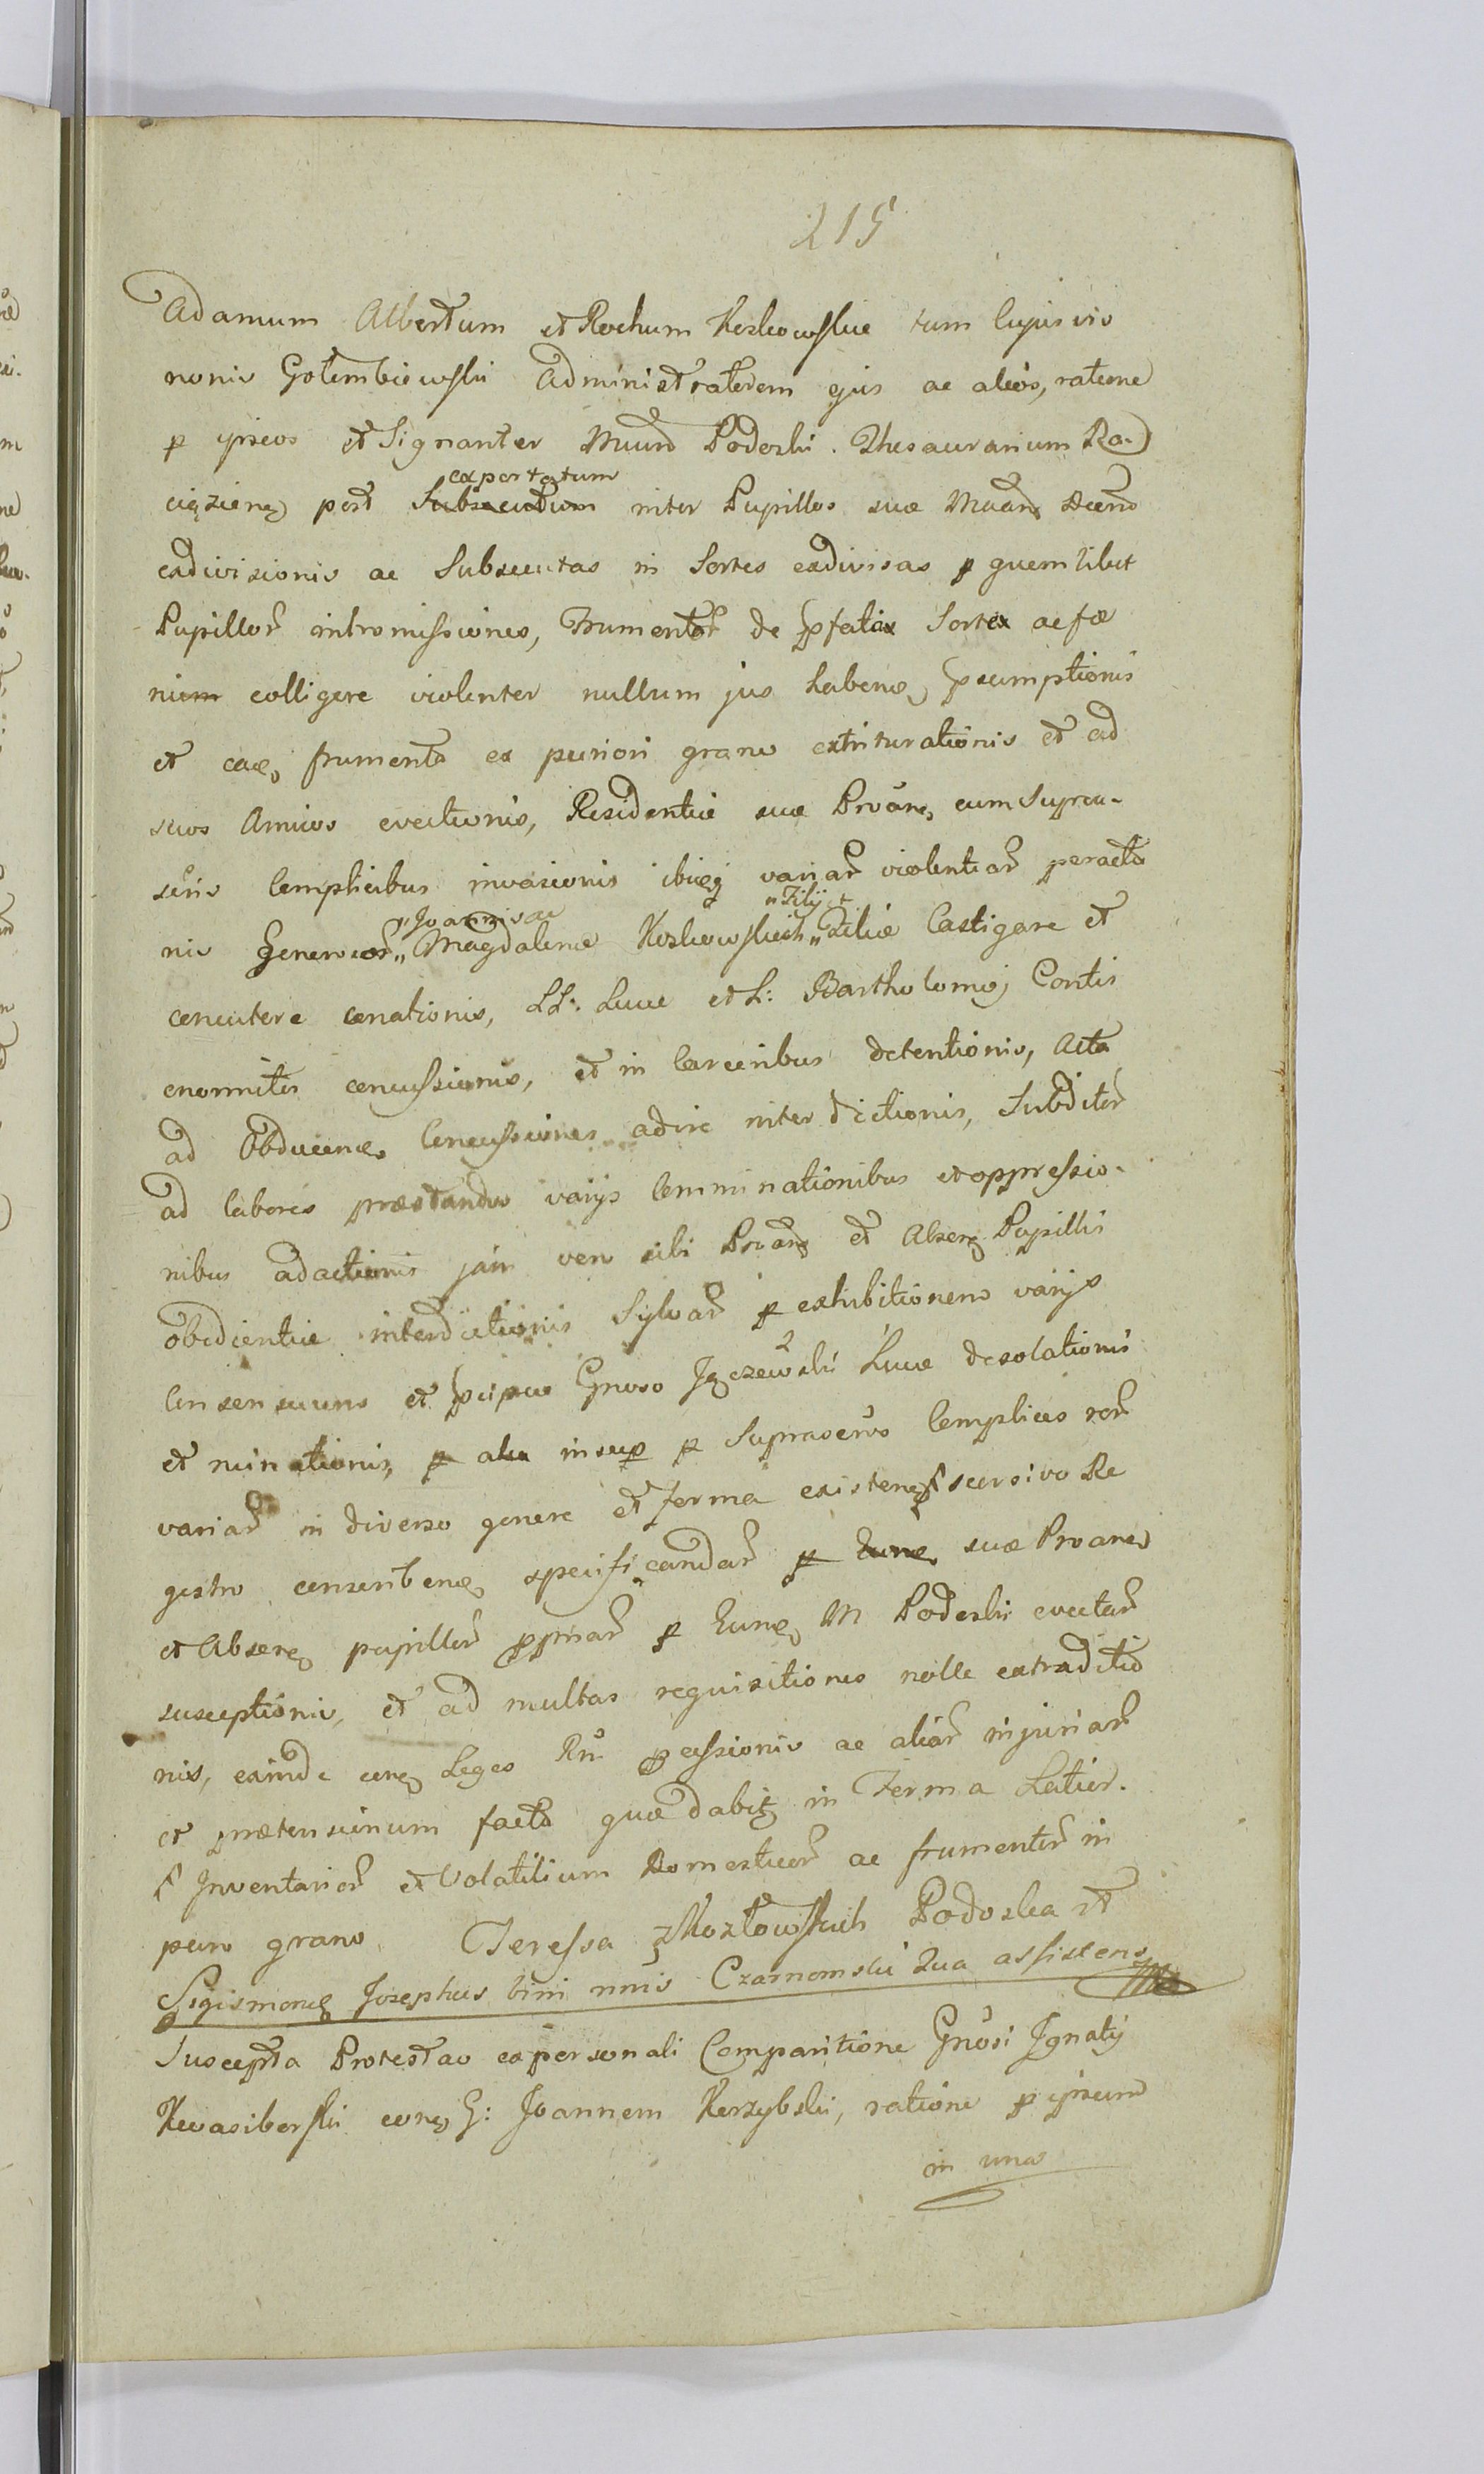 215
Adamum Albertum et Rochum Kozłowskie tum cujusvis
nonis Gołembiewski Administratorem ejus ac alios, ratione
p ipsos et Signanter Mcum Podoski Thesaurarium Ra-
exportatum
ciążieng post Subsecutum inter Pupillos suæ Mcang
exdivisionis ac Subsecutas in Sortes exdivisas p quemlibet
Pupillor intromissiones, Frumentor de pfatis Sortex ac fæ
num colligere violenter nullum jus habeng psumptionis
et frumenta ex puriori grano extriturationis et ad
suos Amicos evectionis, Residentiæ suæ Proang cum supra-
scris Complicibus invasionis ibiq variar violentiar peracto
„Joannis ac „Filij et
nis Generosor „Magdalenæ Kozłowskich „Filiæ Castigare et
concutere conationis, LL: Lucæ et L: Bartholomej Contis
enormiter concussionis, et in Carceribus detentionis, Acta
ad Obduceng Concussiones adire interdictionis, Subditor
ad labores præstandos varijs Comminationibus et oppressio-
nibus adactionis jam vero sibi Proang et Abseng Pupillis
obedientiæ interdictionis Sylvar p exhibitionem varijs
Consensuum et pcipue Gnoso Jączewski Lucæ desolationis
et ruinationis, p alia insup p suprascros Complices rer
variar in diverso genere et forma existeng scorsivo Re
gestro conscribeng specificandar p Eung suæ Proang
et Abseng pupillor ppriar p Eung M Podoski evectar
susceptionis, et ad multas requisitiones nolle extraditio
nis, eaimde cong Leges Rni pcessionis ac aliar injuriar
et prætensionum facto quæ dabitg in Forma Latior.
Inventarior et Volatilium Domesticor ac frumentor in
puro grano Teressa z Kozłowskich Podoska et
Sigismong Josephus bini nnis Czarnomski Qua assistens
Suscepta Protestao ex personali Comparitione Gnosi Ignatij
Kwasiborski cong G: Joannem Karzybski, ratione p ipsum
in una